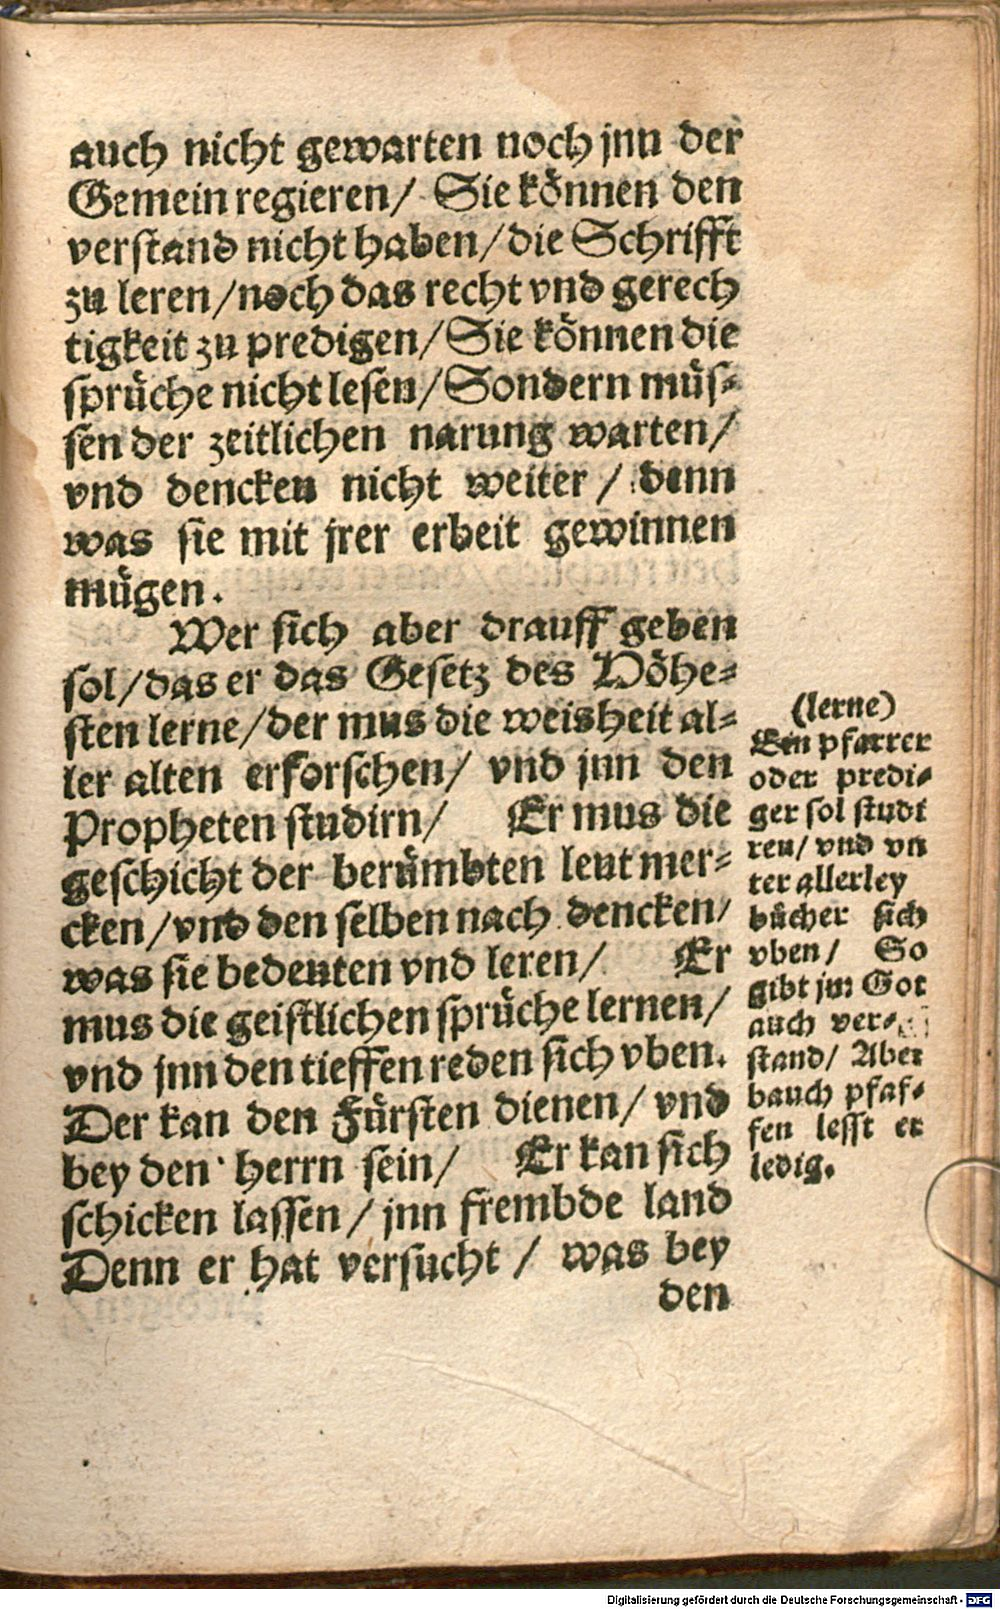 auch nicht gewarten noch jnn der
Gemein regieren/ Sie können den
verstand nicht haben/die Schrifft
zu leren/noch das recht vnd gerech
tigkeit zu predigen/Sie können die
sprüche nicht lesen/Sondern müs-
sen der zeitlichen narung warten/
vnd dencken nicht weiter / denn
was sie mit jrer erbeit gewinnen
mügen.
Wer sich aber drauff geben
sol/das er das Gesetz des Höhe-
sten lerne/der mus die weisheit al-
ler alten erforschen/ vnd jnn den
Propheten studirn/ Er mus die
geschicht der berümbten leut mer-
cken/vnd den selben nach dencken/
was sie bedeuten vnd leren/ Er
mus die geistlichen sprüche lernen/
vnd jnn den tieffen reden sich vben.
Der kan den Fürsten dienen/ vnd
bey den herrn sein/ Er kan sich
schicken lassen/ jnn frembde land
Denn er hat versucht / was bey
den
(lerne)
Ein pfarrer
oder predi-
ger sol studi
ren/ vnd vn
ter allerley
bücher sich
vben/ So
gibt jm Got
auch ver-
stand/ Aber
bauch pfaf-
fen lesst er
ledig.
Digitalisierung gefördert durch die Deutsche Forschungsgemeinschaft - DFG